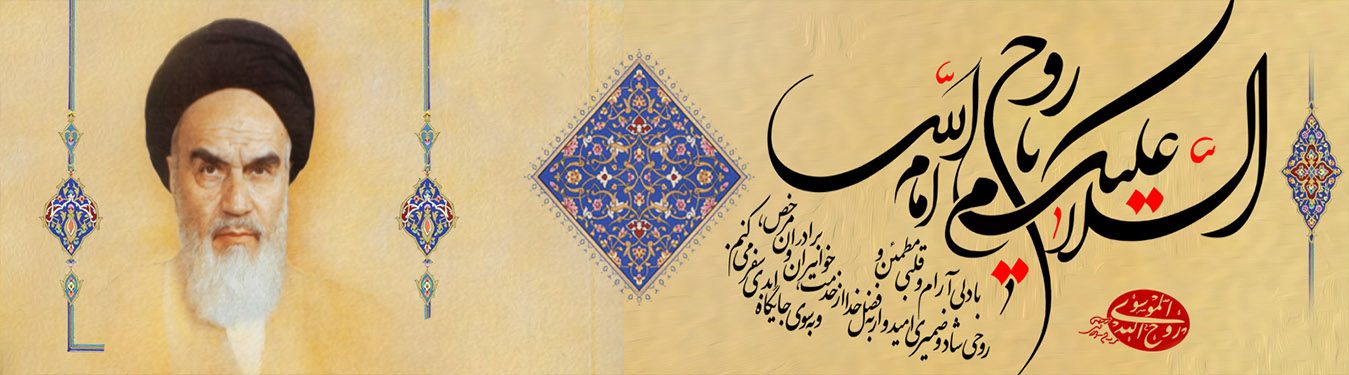 السلام علیک یا امام روح الله
با دلی آرام و قلبی مطمئن و
روحی شاد و ضمیری امیدوار به فضل خدا از خدمت خواهران و برادران مرخص،
و به سوی جایگاه ابدی سفر می‌کنم.
روح الله الموسوی